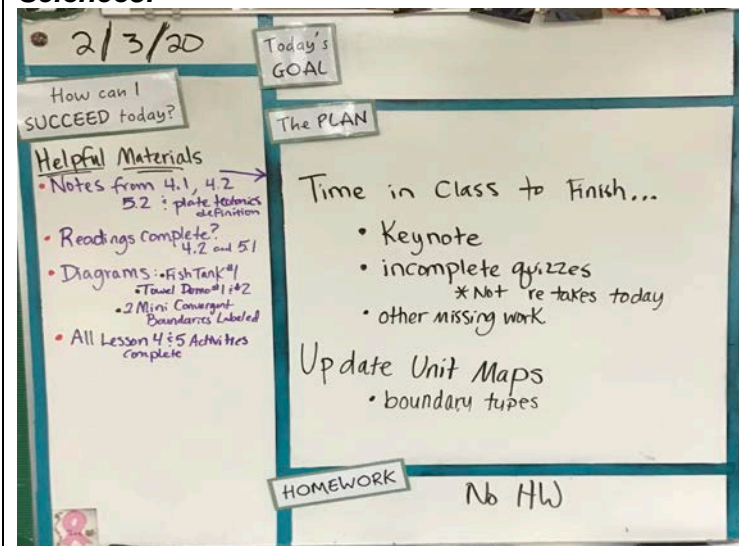 Sciences.
2/3/20
Today's
GOAL
How can I
SUCCEED today?
Helpful Materials
• Notes from 4.1, 4.2
5.2 & plate tectonics
definition
• Readings Complete?
4.2 and 5.1
• Diagrams: • Fish Tank #1
• Towel Demo #1 & #2
• 2 Mini Convergent
Boundaries Labeled
• All Lesson 4 & 5 Activities
Complete
The PLAN
Time in Class to Finish...
• Keynote
• incomplete quizzes
* Not re takes today
• other missing work
Update Unit Maps
• boundary types
HOMEWORK
No HW